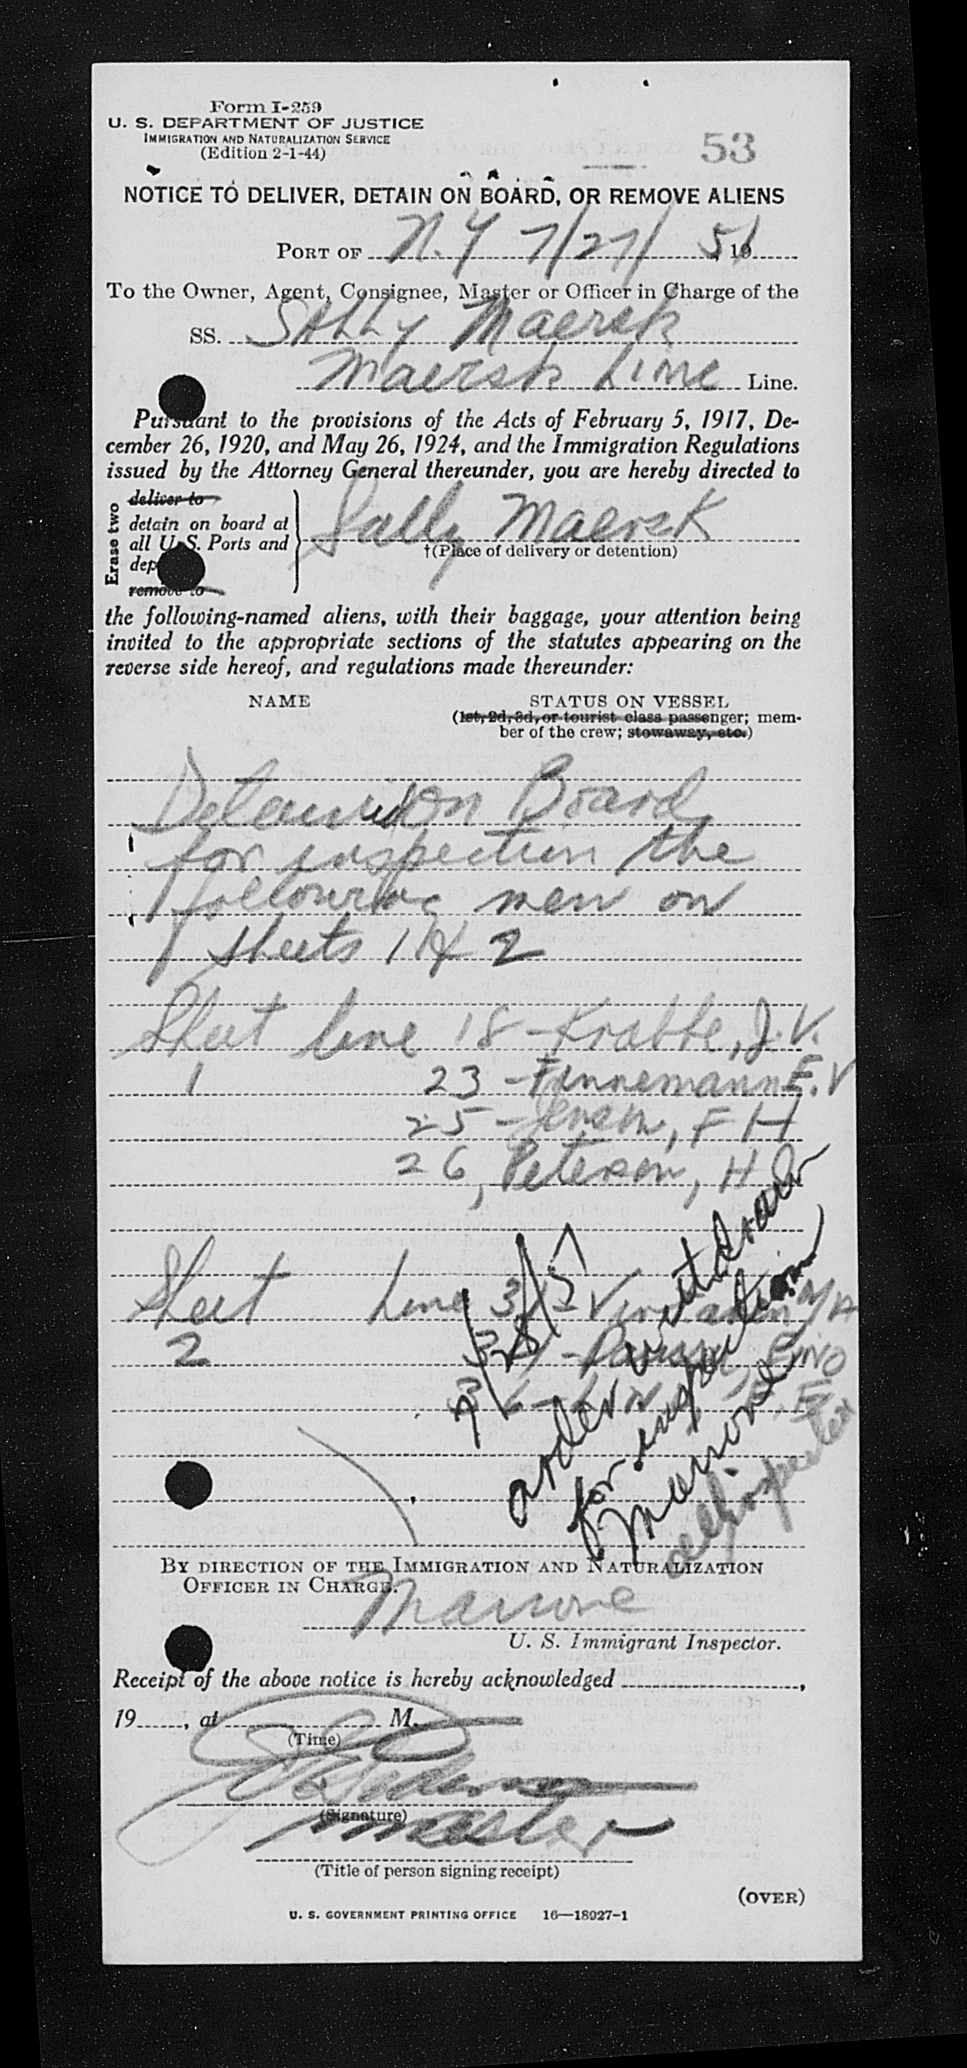 Form I-259
U. S. DEPARTMENT OF JUSTICE
IMMIGRATION AND NATURALIZATION SERVICE
(Edition 2-1-44)
53
NOTICE TO DELIVER, DETAIN ON BOARD, OR REMOVE ALIENS
PORT OF N.Y 7/27/ 51, 19
To the Owner, Agent, Consignee, Master or Officer in Charge of the
SS. SALLY Maersk
Maersk Line Line.
Pursuant to the provisions of the Acts of February 5, 1917, De-
cember 26, 1920, and May 26, 1924, and the Immigration Regulations
issued by the Attorney General thereunder, you are hereby directed to
Erase two
deliver to
detain on board at
all U. S. Ports and
dep
remove to
Sally Maersk
†(Place of delivery or detention)
the following-named aliens, with their baggage, your attention being
invited to the appropriate sections of the statutes appearing on the
reverse side hereof, and regulations made thereunder:
NAME STATUS ON VESSEL
(1st, 2d, 3d, or tourist class passenger; mem-
ber of the crew; stowaway, etc.)
Board
for inspection the
following men on
sheets 1 & 2
Sheet line 18 - Krabbe, J.V.
1 23 - Finnemann E.V
25 - Jensen, F H
26, Petersen, H
Sheet Line
2
7/28/51
order withdrawn
for inspection
Marrone
BY DIRECTION OF THE IMMIGRATION AND NATURALIZATION
OFFICER IN CHARGE.
Marrone
U. S. Immigrant Inspector.
Receipt of the above notice is hereby acknowledged ,
19 , at M.
(Time)
(Signature)
master
(Title of person signing receipt)
(OVER)
U. S. GOVERNMENT PRINTING OFFICE 16—18927-1